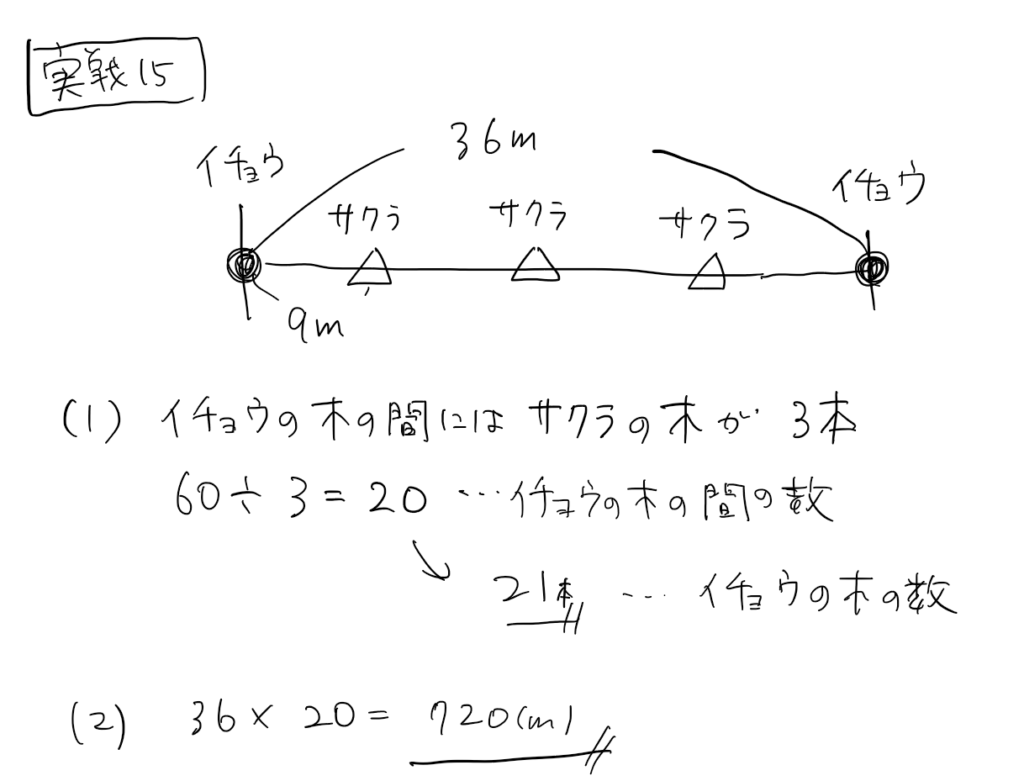 実戦15
36m
イチョウ
イチョウ
サクラ サクラ サクラ
9m
(1) イチョウの木の間にはサクラの木が 3本
60÷3=20 …イチョウの木の間の数
21本 … イチョウの木の数
(2) 36×20= 720(m)